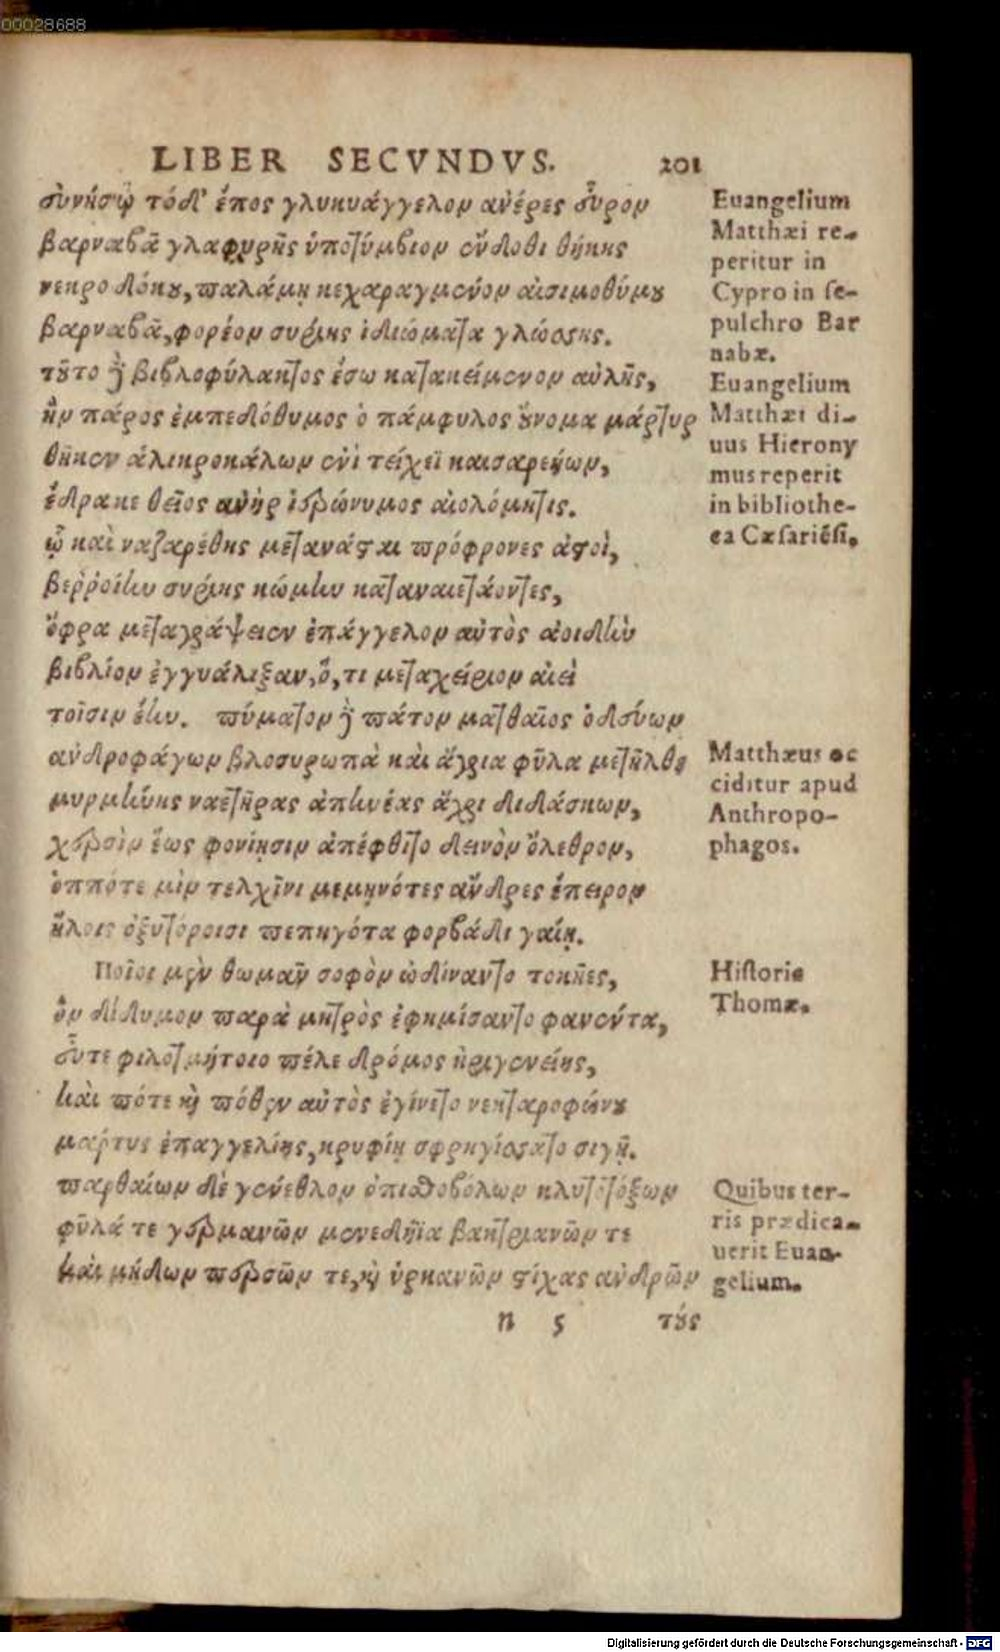 00028688
LIBER SECVNDVS. 201
σὺν ἠσῷ τόδ' ἔπος γλυκυάγγελον ἀνέρες εὗρον
βαρναβᾶ γλαφυρῆς ὑποτύμβιον ἔνδοθι θήκης
νεκροδόκου, παλάμῃ κεχαραγμένον αἰσιμοθύμου
βαρναβᾶ, φορέον συρίης ἰδιώματα γλώσσης.
τοῦτο γὰρ βιβλοφύλακτος ἔσω κατακείμενον αὐλῆς,
ἣν πάρος ἐμπεδόθυμος ὁ πάμφυλος οὔνομα μάρτυρ
θῆκεν ἁλικροκάλων ἐνὶ τείχεϊ καισαρεήων,
ἔδρακε θεῖος ἀνὴρ ἱερώνυμος αἰολόμητις.
ᾧ καὶ ναζαρέθης μετανάσται πρόφρονες ἀστοὶ,
βεῤῥοίην συρίης κώμην καταναιετάοντες,
ὄφρα μεταγράψειεν ἐπάγγελον αὐτὸς ἀοιδὴν
βιβλίον ἐγγυάλιξαν, ὅ, τι μεταχείριον αἰεὶ
τοῖσιν ἔην. πύματον γὰρ πάτον ματθαῖος ὁδεύων
ἀνδροφάγων βλοσυρωπὰ καὶ ἄγρια φῦλα μετῆλθε
μυρμήνης ναετῆρας ἀπηνέας ἄχρι διδάσκων,
χερσὶν ἕως φονίῃσιν ἀπέφθιτο δεινὸν ὄλεθρον,
ὁππότε μὶν τελχῖνι μεμηνότες ἄνδρες ἔπειρον
ἥλοις ὀξυτόροισι πεπηγότα φορβάδι γαίῃ.
Ποῖοι μὲν θωμᾶν σοφὸν ὠδίναντο τοκῆες,
ὃν δίδυμον παρὰ μητρὸς ἐφημίσαντο φανέντα,
οὔτε φιλοτμήτοιο πέλε δρόμος ἠριγενείης,
καὶ πότε καὶ πόθεν αὐτὸς ἐγίνετο νεκταροφώνου
μάρτυς ἐπαγγελίης, κρυφίῃ σφρηγίσσατο σιγῇ.
παρθαίων δὲ γένεθλον ὀπισθοβόλων κλυτοτόξων
φῦλά τε γερμανῶν μενεδήϊα βακτριανῶν τε
καὶ μήδων περσῶν τε, καὶ ὑρκανῶν στίχας ἀνδρῶν
n 5 τούς
Euangelium
Matthæi re-
peritur in
Cypro in se-
pulchro Bar
nabæ.
Euangelium
Matthæi di-
uus Hierony
mus reperit
in bibliothe-
ca Cæsariẽsi.
Matthæus oc
ciditur apud
Anthropo-
phagos.
Historie
Thomæ.
Quibus ter-
ris prædica-
uerit Euan-
gelium.
Digitalisierung gefördert durch die Deutsche Forschungsgemeinschaft - DFG